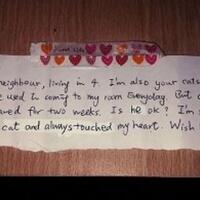 neighbour, living in 4. I'm also your cats
used to coming to my room everyday. But
for two weeks. Is he ok? I'm
cat and always touched my heart. Wish